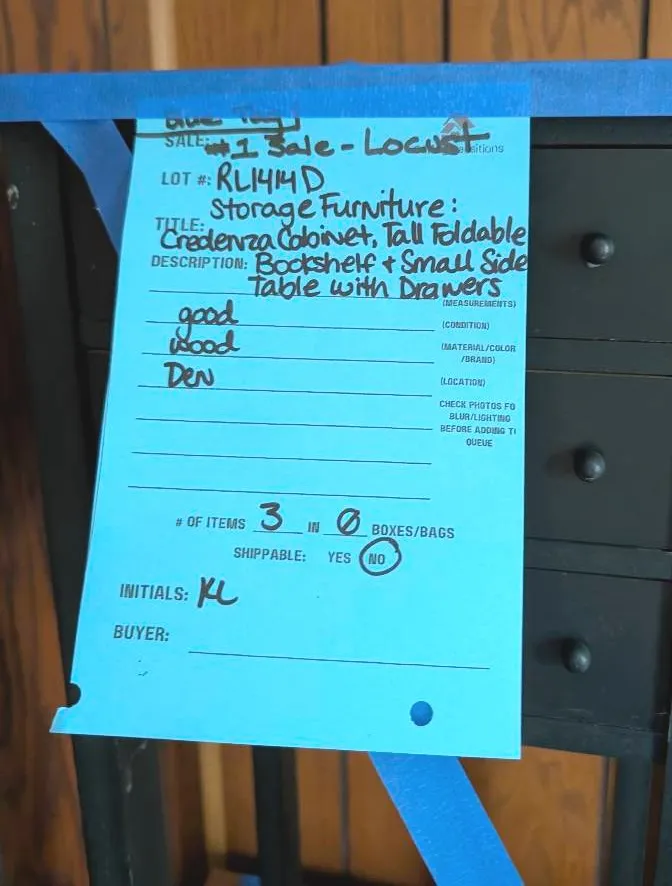 Blue Tag
SALE: #1 Sale - Locust
LOT #: RL1414D
Storage Furniture:
TITLE: Credenza Cabinet, Tall Foldable
DESCRIPTION: Bookshelf + Small Side
Table with Drawers
(MEASUREMENTS)
good (CONDITION)
wood (MATERIAL/COLOR
/BRAND)
Den (LOCATION)
CHECK PHOTOS FO
BLUR/LIGHTING
BEFORE ADDING T
QUEUE
# OF ITEMS 3 IN 0 BOXES/BAGS
SHIPPABLE: YES NO
INITIALS: KL
BUYER: